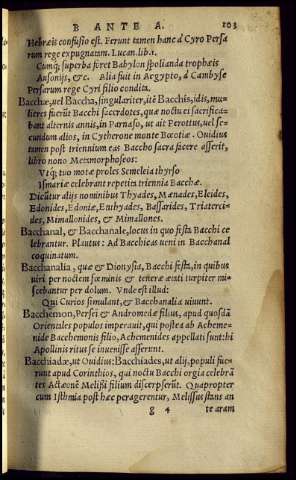 B ANTE A. 103
Hebræis confusio est. Ferunt tamen hanc à Cyro Persa
rum rege expugnatam. Lucan.lib.1.
Cumq; superba foret Babylon spolianda trophæis
Ausonijs, &c. Alia fuit in Aegypto, à Cambyse
Persarum rege Cyri filio condita.
Bacchæ, uel Baccha, singulariter, itē Bacchis, idis, mu-
lieres fuerūt Bacchi sacerdotes, quæ noctu ei sacrifica-
bant alternis annis, in Parnaso, ut ait Perottus, uel se-
cundum alios, in Cytherone monte Bœotiæ. Ouidius
tamen post triennium eas Baccho sacra facere asserit,
libro nono Metamorphoseos:
Vtq; tuo motæ proles Semeleia thyrso
Ismariæ celebrant repetita triennia Bacchæ.
Dicūtur alijs nominibus Thyades, Mænades, Eleides,
Edonides, Edoniæ, Enthyades, Bassarides, Triaterci-
des, Mimallonides, & Mimallones.
Bacchanal, & Bacchanale, locus in quo festa Bacchi ce
lebrantur. Plautus: Ad Bacchas ueni in Bacchanal
coquinatum.
Bacchanalia, quæ & Dionysia, Bacchi festa, in quibus
uiri per noctem fœminis & teneræ ætati turpiter mi-
scebantur per dolum. Vnde est illud:
Qui Curios simulant, & Bacchanalia uiuunt.
Bacchemon, Persei & Andromedæ filius, apud quosdā
Orientales populos imperauit, qui postea ab Acheme-
nide Bacchemonis filio, Achemenides appellati sunt: hi
Apollinis ritus se inuenisse asserunt.
Bacchiadæ, ut Ouidius: Bacchiades, ut alij, populi fue-
runt apud Corinthios, qui noctu Bacchi orgia celebrā
tes Actæonē Melissi filium discerpserūt. Quapropter
cum Isthmia post hæc peragerentur, Melissus stans an
g 4 te aram